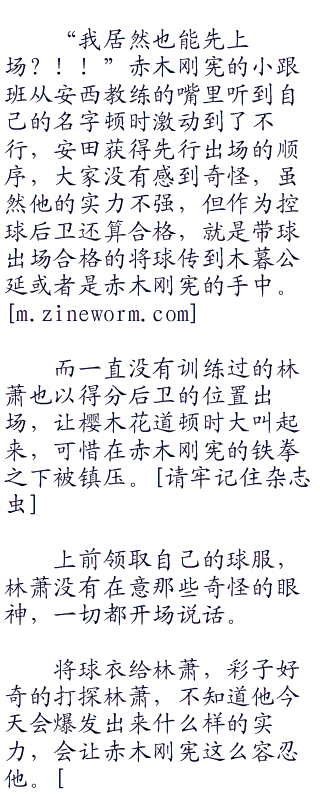 “我居然也能先上
场？！！”赤木刚宪的小跟
班从安西教练的嘴里听到自
己的名字顿时激动到了不
行，安田获得先行出场的顺
序，大家没有感到奇怪，虽
然他的实力不强，但作为控
球后卫还算合格，就是带球
出场合格的将球传到木暮公
延或者是赤木刚宪的手中。
[m.zineworm.com]
而一直没有训练过的林
萧也以得分后卫的位置出
场，让樱木花道顿时大叫起
来，可惜在赤木刚宪的铁拳
之下被镇压。[请牢记住杂志
虫]
上前领取自己的球服，
林萧没有在意那些奇怪的眼
神，一切都开场说话。
将球衣给林萧，彩子好
奇的打探林萧，不知道他今
天会爆发出来什么样的实
力，会让赤木刚宪这么容忍
他。[